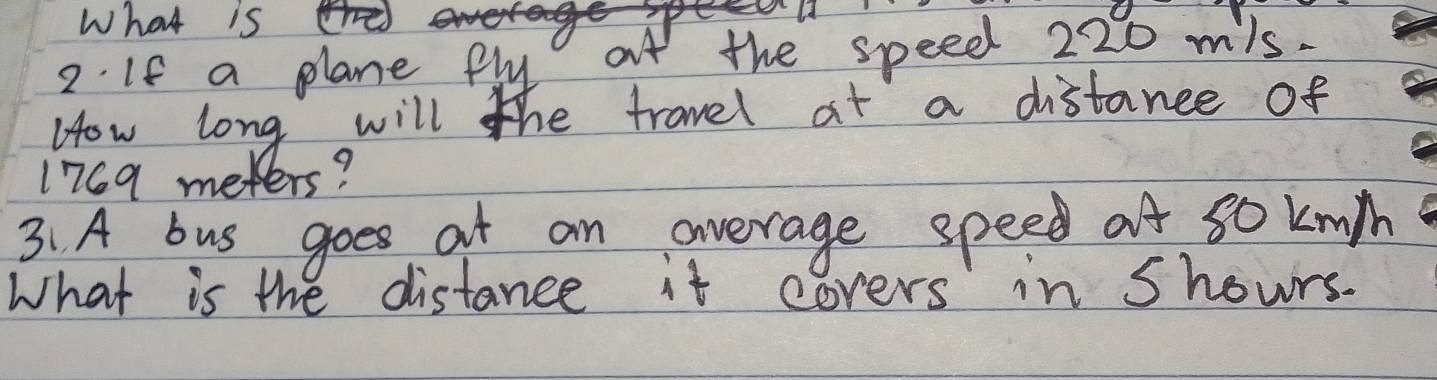 What is
2. If a plane fly at the speed 220 m/s.
How long will the travel at a distance of
1769 meters?
3. A bus goes at an average speed at 80 km/h
What is the distance it covers in 5 hours.